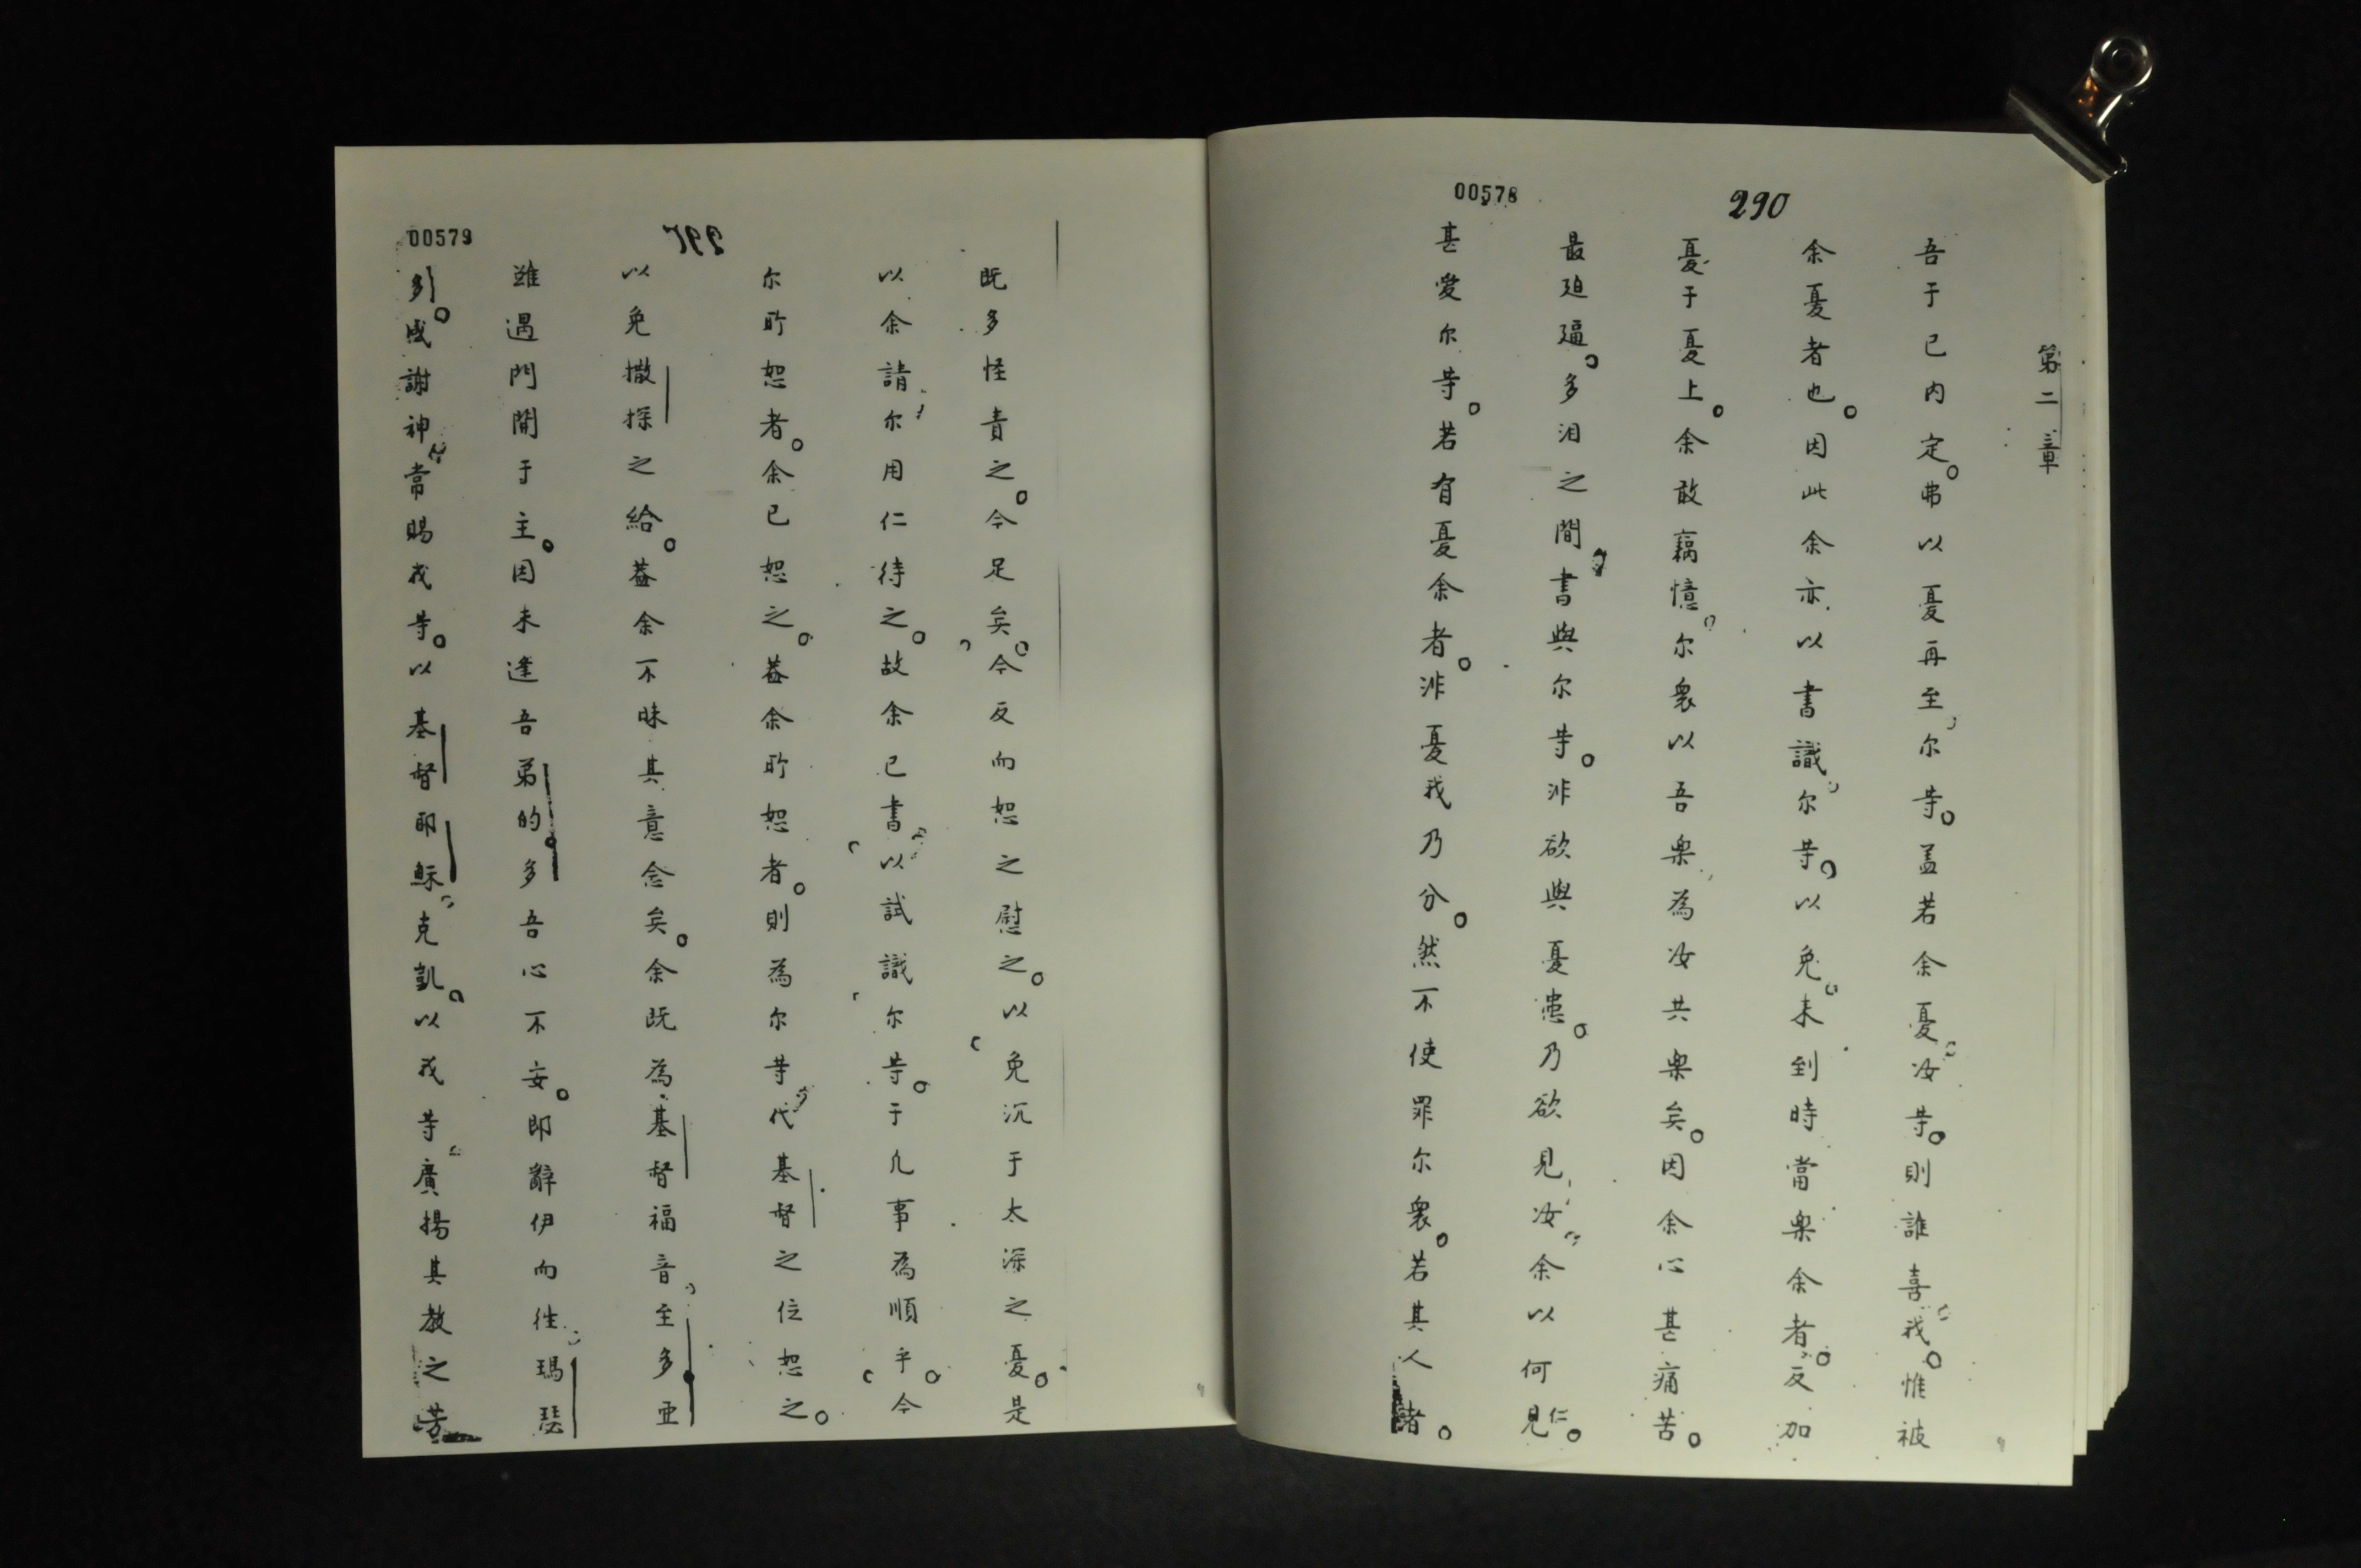 00578
290
第二章
吾于已内定。弗以憂再至尔等。盖若余憂汝等。則誰喜我。惟被
余憂者也。因此余亦以書識尔等。以免未到時當楽余者。反加
憂于憂上。余敢藕憶尔衆以吾楽為汝共楽矣。因余心甚痛苦。
最廹逼。多泪之間書與尔等。非欲與憂患。乃欲見汝余以何仁見。
甚愛尔等。若有憂余者。非憂我乃分。然不使罪尔衆。若其人者。
00579
既多怪責之。今足矣。今反而恕之慰之。以免沉于太深之憂。是
以余請尔用仁待之。故余已書以試識尔等。于凢事為順乎。今
尔所恕者。余已恕之。葢余所恕者。則為尔等代基督之位恕之。
以免撒探之紿。葢余不昧其意念矣。余既為基督福音至多亜
雖遇門開于主。因未逢吾弟的多吾心不妄。即辭伊而徃瑪瑟
多。感謝神常賜我等。以基督耶穌克凱。以我等廣揚其教之芳